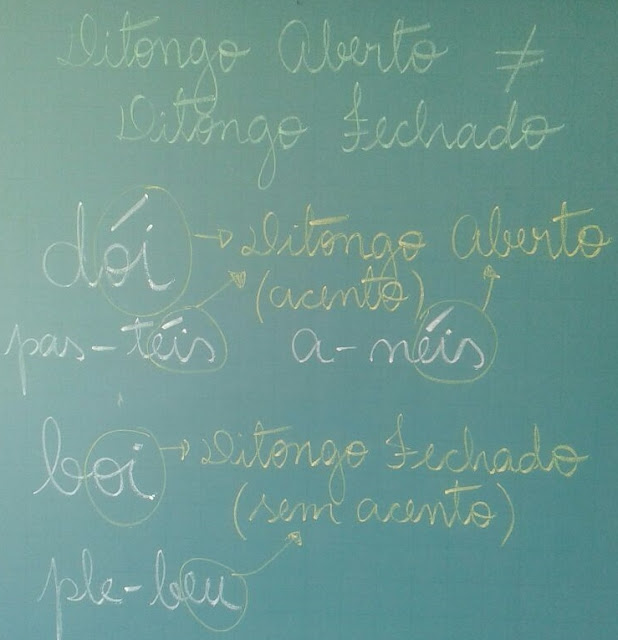 Ditongo Aberto ≠
Ditongo Fechado
dói → Ditongo Aberto
(acento)
pas-téis a-néis
boi → Ditongo Fechado
(sem acento)
ple-beu